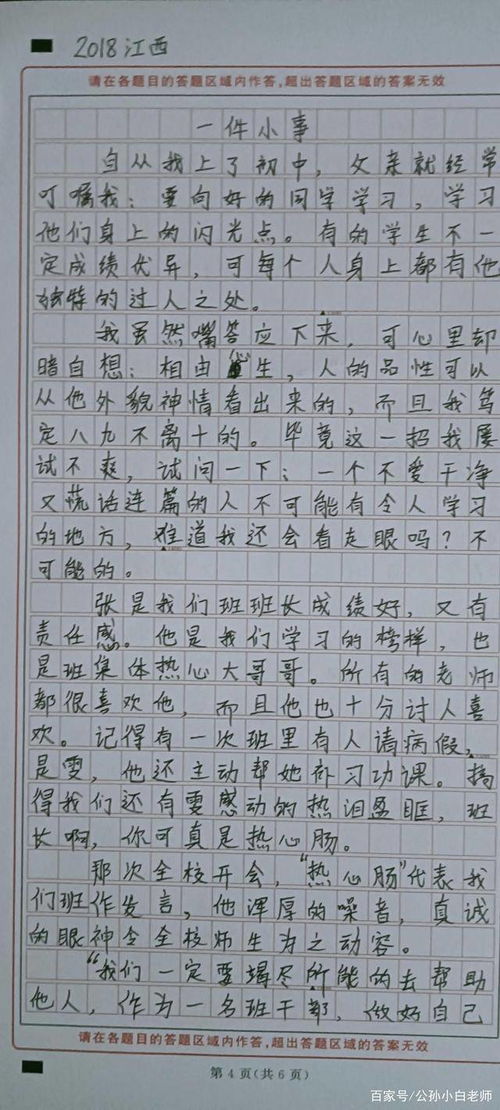 2018江西
请在各题目的答题区域内作答,超出答题区域的答案无效
一件小事
自从我上了初中，父亲就经常
叮嘱我：要向好的同学学习，学习
他们身上的闪光点。有的学生不一
定成绩优异，可每个人身上都有他
独特的过人之处。
我虽然嘴答应下来，可心里却
暗自想：相由心生，人的品性可以
从他外貌神情看出来的，而且我笃
定八九不离十的。毕竟这一招我屡
试不爽，试问一下：一个不爱干净
又慌话连篇的人不可能有令人学习
的地方，难道我还会看走眼吗？不
可能的。
张是我们班班长成绩好，又有
责任感。他是我们学习的榜样，也
是班集体热心大哥哥。所有的老师
都很喜欢他，而且他也十分讨人喜
欢。记得有一次班里有人请病假，
是雯，他还主动帮她补习功课。搞
得我们还有雯感动的热泪盈眶，班
长啊，你可真是热心肠。
那次全校开会，“热心肠”代表我
们班作发言，他浑厚的噪音，真诚
的眼神令全校师生为之动容。
“我们一定要竭尽所能的去帮助
他人，作为一名班干部，做好自己
请在各题目的答题区域内作答,超出答题区域的答案无效
第4页(共6页)
百家号/公孙小白老师